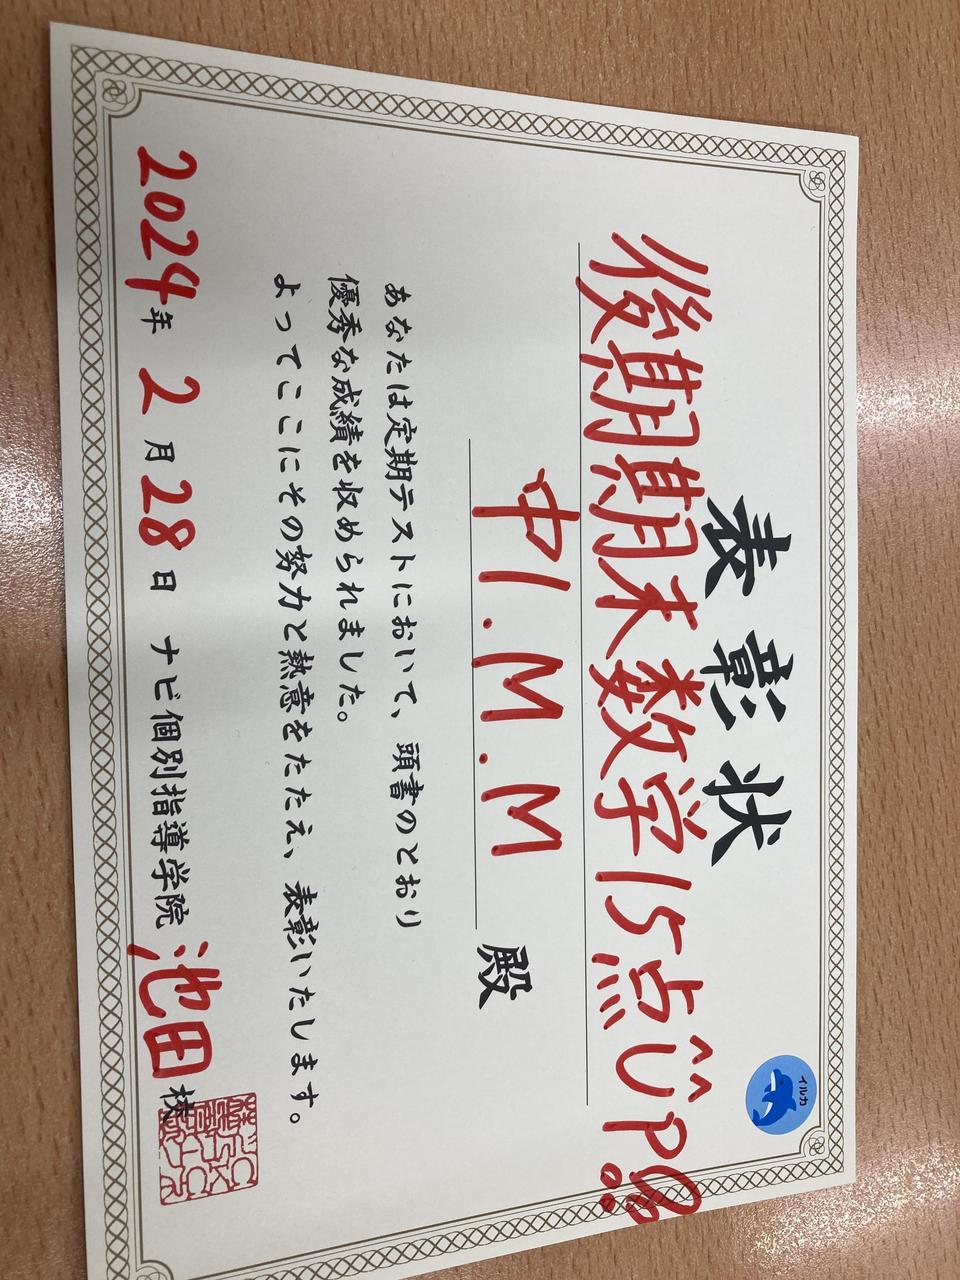 表彰状
イルカ
後期期末数学15点UP!!
中1.M.M
殿
あなたは定期テストにおいて、頭書のとおり
優秀な成績を収められました。
よってここにその努力と熱意をたたえ、表彰いたします。
2024年 2月28日 ナビ個別指導学院 池田校